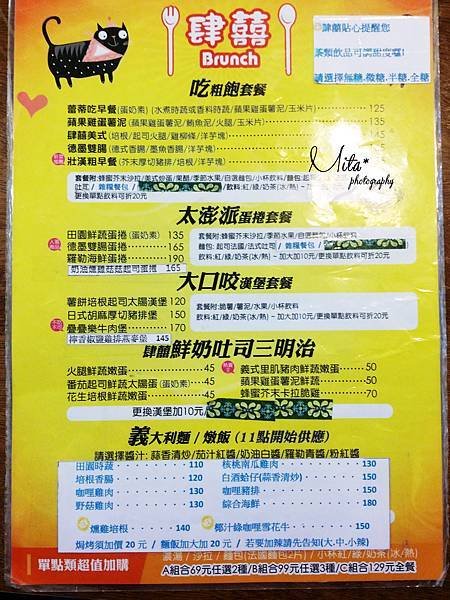 肆囍
Brunch
肆囍貼心提醒您
茶類飲品可調甜度喔!
請選擇無糖.微糖.半糖.全糖
吃粗飽套餐
蕾蒂吃早餐(蛋奶素) (水煮時蔬或香料時蔬/蘋果雞蛋薯泥/玉米片) 125
蘋果雞蛋薯泥(蘋果雞蛋薯泥/鮪魚泥/火腿/玉米片) 135
肆囍美式(培根/起司火腿/雞柳條/洋芋塊)
德墨雙腸(德式香腸/墨魚香腸/洋芋塊)
壯漢粗早餐(芥末厚切豬排/培根/洋芋塊)
Mita*
photography
套餐附:蜂蜜芥末沙拉/美式炒蛋/果醋/季節水果/自選麵包/小杯飲料/麵包:起司
吐司/雜糧餐包/
飲料:紅/綠/奶茶(冰/熱)
更換單點飲料可折20元
太澎派蛋捲套餐
田園鮮蔬蛋捲(蛋奶素) 135
德墨雙腸蛋捲 165
羅勒海鮮蛋捲 190
奶油燻雞菇菇起司蛋捲 165
套餐附:蜂蜜芥末沙拉/季節水果/自選麵包/小杯飲料
麵包:起司法國/法式吐司/雜糧餐包/
飲料:紅/綠/奶茶(冰/熱) ~ 加大加10元/更換單點飲料可折20元
大口咬漢堡套餐
薯餅培根起司太陽滿堡 120
日式胡麻厚切豬排堡 150
疊疊樂牛肉堡 170
檸香椒鹽雞排燕麥堡 145
套餐附:脆薯/薯泥/水果/小杯飲料
飲料:紅/綠/奶茶(冰/熱) ~ 加大加10元/更換單點飲料可折20元
肆囍鮮奶吐司三明治
火腿鮮蔬嫩蛋 45
番茄起司鮮蔬太陽蛋(蛋奶素) 45
花生培根鮮蔬嫩蛋 45
義式里肌豬肉鮮蔬嫩蛋 50
蘋果雞蛋薯泥鮮蔬 50
蜂蜜芥末卡拉脆雞 70
更換漢堡加10元/
義大利麵 / 燉飯 (11點開始供應)
請選擇醬汁: 蒜香清炒/茄汁紅醬/奶油白醬/羅勒青醬/粉紅醬
田園時蔬 110
培根香腸 120
咖哩雞肉 130
野菇雞肉 130
核桃南瓜雞肉 130
白酒蛤仔(蒜香清炒) 150
咖哩豬排 150
綜合海鮮 180
燻雞培根 140
椰汁綠咖哩雪花牛 150
焗烤須加價 20 元 / 麵飯加大加 20 元 / 若要加辣請先告知(大.中.小辣)
單點類超值加購
濃湯 / 沙拉 / 麵包(法國麵包2片) / 小杯紅/綠/奶茶(冰/熱)
A組合69元任選2種/B組合99元任選3種/C組合129元全餐